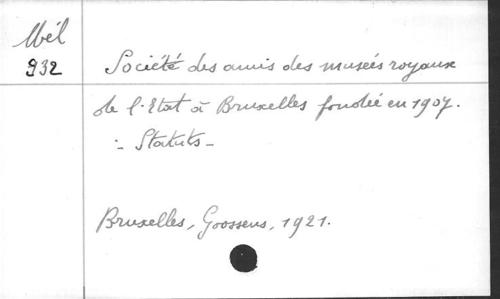 Mél
932
Société des amis des musées royaux
de l'Etat à Bruxelles fondée en 1907.
:- Statuts -
Bruxelles, Goossens, 1921.